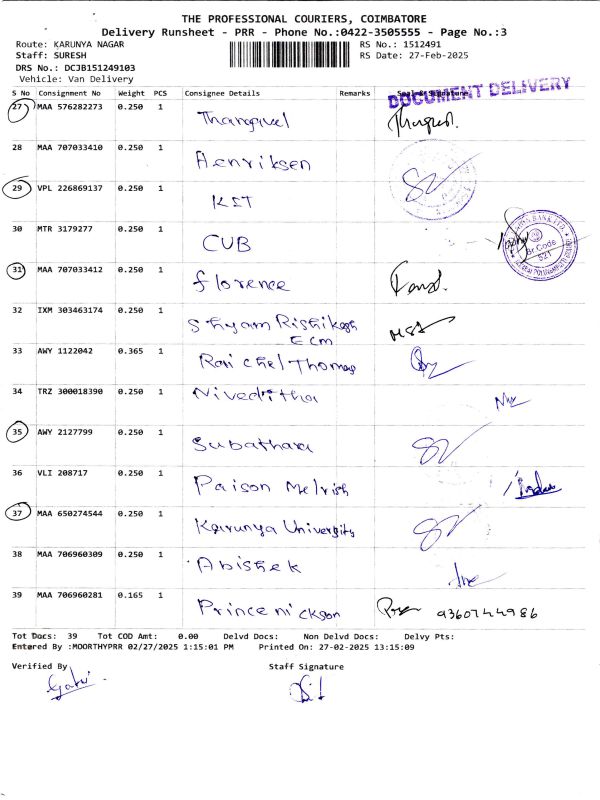 THE PROFESSIONAL COURIERS, COIMBATORE
Delivery Runsheet - PRR - Phone No.:0422-3505555 - Page No.:3
Route: KARUNYA NAGAR RS No.: 1512491
Staff: SURESH RS Date: 27-Feb-2025
DRS No.: DCJB151249103
Vehicle: Van Delivery
DOCUMENT DELIVERY
S No Consignment No Weight PCS Consignee Details Remarks Seal & Signature
27 MAA 576282273 0.250 1 Thangavel
28 MAA 707033410 0.250 1 Henriksen
29 VPL 226869137 0.250 1 KIT
30 MTR 3179277 0.250 1 CUB
31 MAA 707033412 0.250 1 florence
32 IXM 303463174 0.250 1 Shyam Rishikesh
ECM
33 AWY 1122042 0.365 1 Raichel Thomas
34 TRZ 300018390 0.250 1 Niveditha
35 AWY 2127799 0.250 1 Subathara
36 VLI 208717 0.250 1 Paison Melvish
37 MAA 650274544 0.250 1 Karunya University
38 MAA 706960309 0.250 1 Abishek
39 MAA 706960281 0.165 1 Princenickson 9360744986
Tot Docs: 39 Tot COD Amt: 0.00 Delvd Docs: Non Delvd Docs: Delvy Pts:
Entered By :MOORTHYPRR 02/27/2025 1:15:01 PM Printed On: 27-02-2025 13:15:09
Verified By Staff Signature